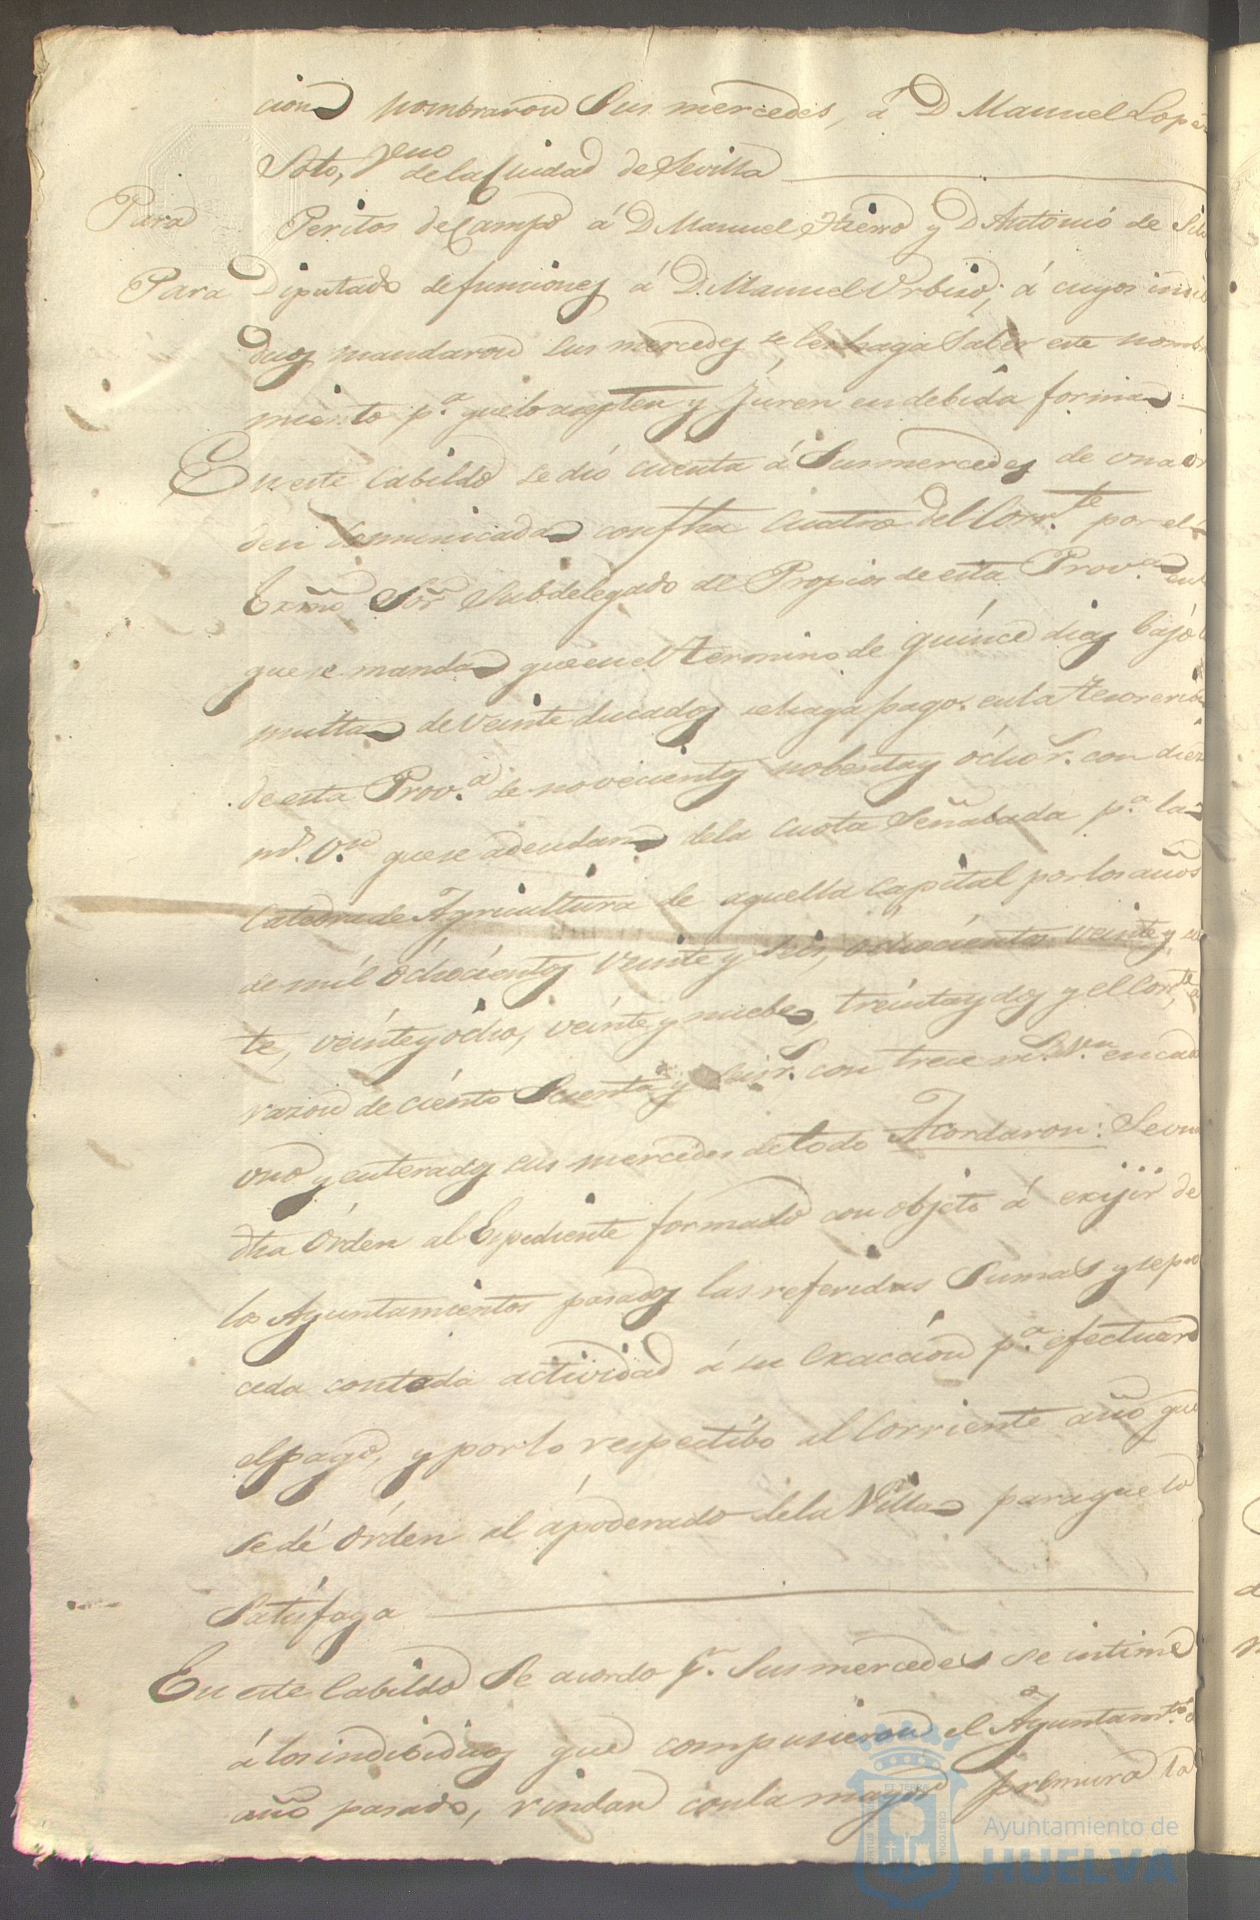 cion nombraron Sus mercedes, á D Manuel Lopez
Soto, Veno de la Ciudad de Sevilla
Para Peritos de Campo á D Manuel Hierro y D Antonio de
Para Diputado de funciones á D. Manuel Orbiso; á cuyos indibi
duos mandaron sus mercedes se les haga saber este nombra
miento pa. que lo acepten y juren en debida forma
En este Cabildo se dió cuenta á Sus mercedes de una or
den comunicada con fha cuatro del Corrte. por el
Exmo Sor Subdelegado de Propios de esta Prova. en
que se manda que en el termino de quínce dias bajó
multa de veinte ducados se haga pago en la Tesoreria
de esta Prova. de novecientos nobenta y ócho r. con diez
mr. Von que se adeudan dela cuota Señalada pa. la
Catedra de Agricultura de aquella Capital por los años
de mil ochocientos veinte y seis, ochocientos veinte y sie
te, veínte y ócho, veínte y nuebe, treinta y dos y el Corrte. á
razon de ciento y seis r. con trece mrs. Von en cada
uno y enterados sus mercedes de todo Acordaron: Se una
dha Órden al Expediente formado con objeto á exijir de
los Ayuntamientos pasados las referidas Sumas y se pro
ceda con toda actividad á su Exaccion pa. efectuar
el pago, y por lo respectibo al Corriente año que
se dé Órden al apoderado dela Villa para que lo
Satísfaga
En este Cabildo Se acordo pr. Sus mercedes se intime
á los indibiduos que compusieron el Ayuntamto.
año pasado, rindan con la mayor premura la
Ayuntamiento de
HUELVA